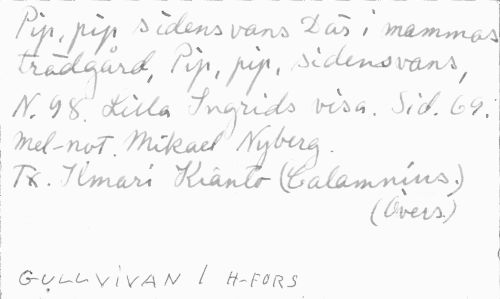 Pip, pip sidensvans Där i mammas
trädgård, Pip, pip, sidensvans,
N. 98. Lilla Ingrids visa. Sid. 69.
Mel-not. Mikael Nyberg.
Tx. Ilmari Kianto (Calamnius.)
(Övers.)
GULLVIVAN / H-FORS